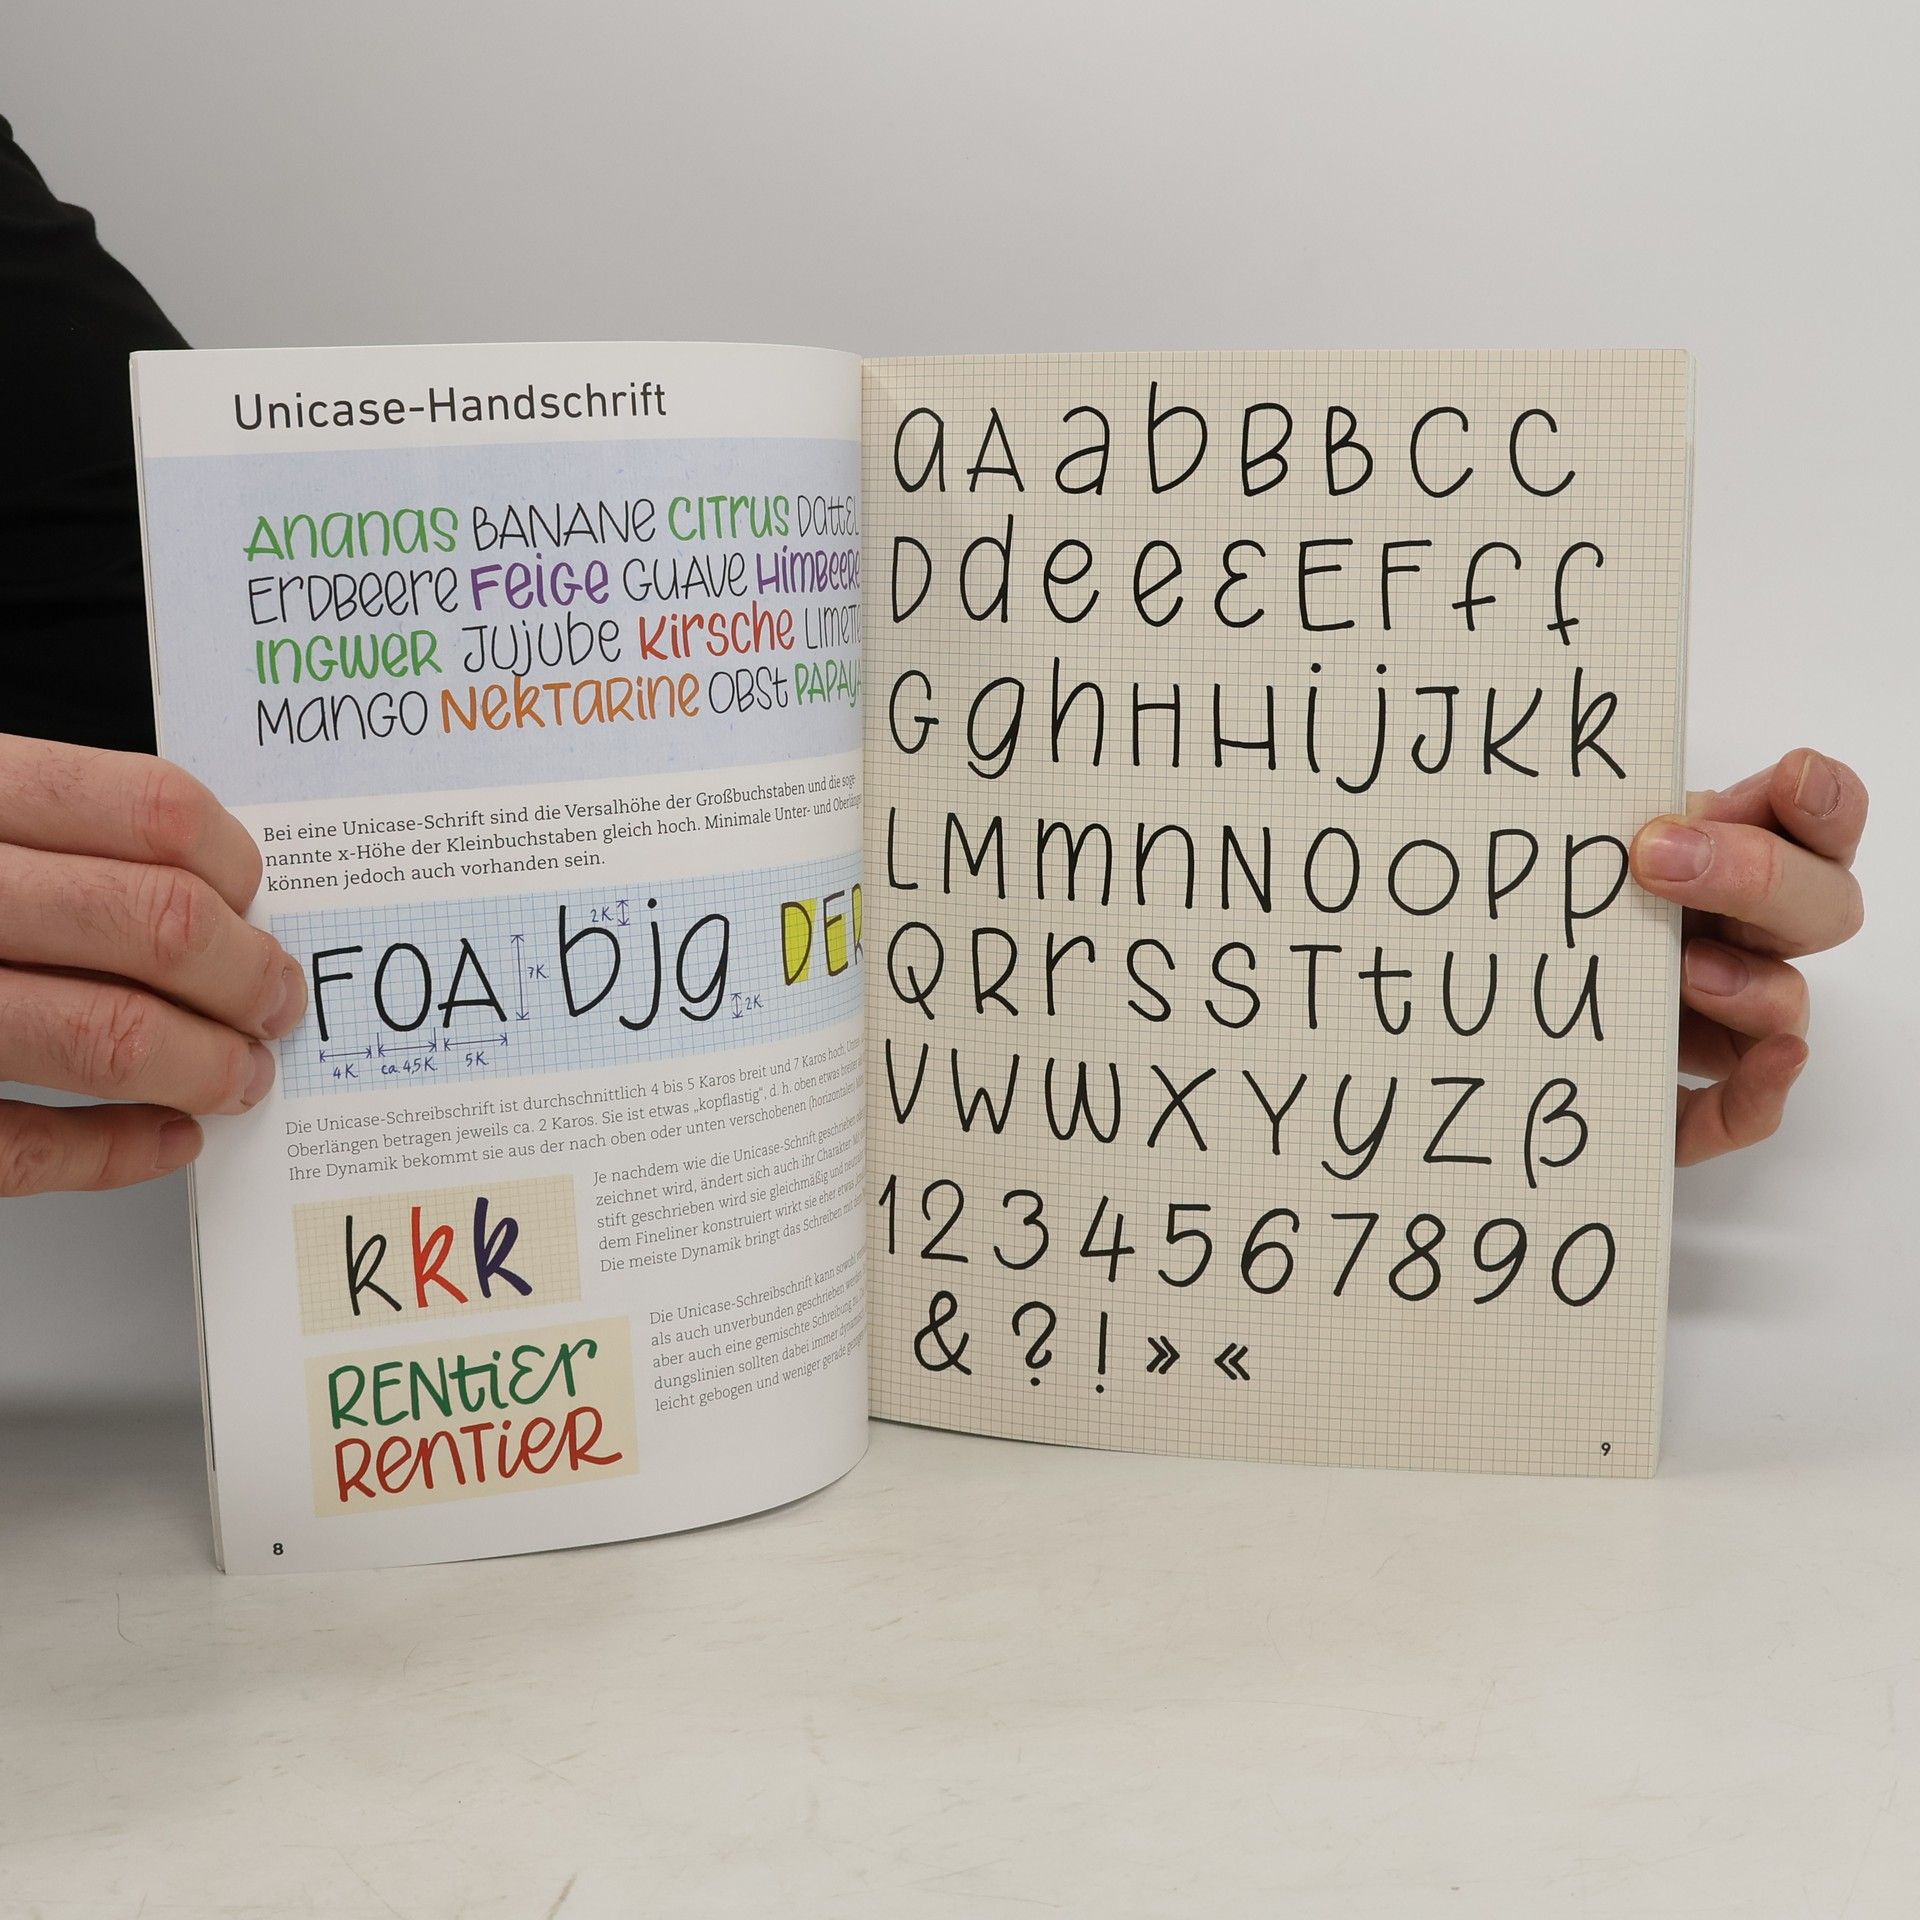 Unicase-Handschrift
Ananas BANANE CITrUS DattEL
ErDBeere FeiGe GUAVe HimBeere
InGWeR JUjUbe KirSChe LImeTT
ManGO NekTaRine OBSt PAPAYA
Bei eine Unicase-Schrift sind die Versalhöhe der Großbuchstaben und die soge-
nannte x-Höhe der Kleinbuchstaben gleich hoch. Minimale Unter- und Oberlängen
können jedoch auch vorhanden sein.
FOA bjg DER
2K
7K
2K
4K ca. 4,5K 5K
Die Unicase-Schreibschrift ist durchschnittlich 4 bis 5 Karos breit und 7 Karos hoch. Unter-
Oberlängen betragen jeweils ca. 2 Karos. Sie ist etwas „kopflastig“, d. h. oben etwas breiter
Ihre Dynamik bekommt sie aus der nach oben oder unten verschobenen (horizontalen)
Je nachdem wie die Unicase-Schrift geschrieben
zeichnet wird, ändert sich auch ihr Charakter. Mit
stift geschrieben wird sie gleichmäßig und
dem Fineliner konstruiert wirkt sie eher etwas
Die meiste Dynamik bringt das Schreiben mit
k k k
Die Unicase-Schreibschrift kann sowohl
als auch unverbunden geschrieben werden
aber auch eine gemischte Schreibung
dungslinien sollten dabei immer
leicht gebogen und weniger gerade
RENtiEr
RenTieR
8
a A a b B B C C
D d e e Ɛ E F f f
G g h H H i j J K k
L M m n N O O P p
Q R r S S T t U u
V W w X Y y Z ß
1 2 3 4 5 6 7 8 9 0
& ? ! » «
9